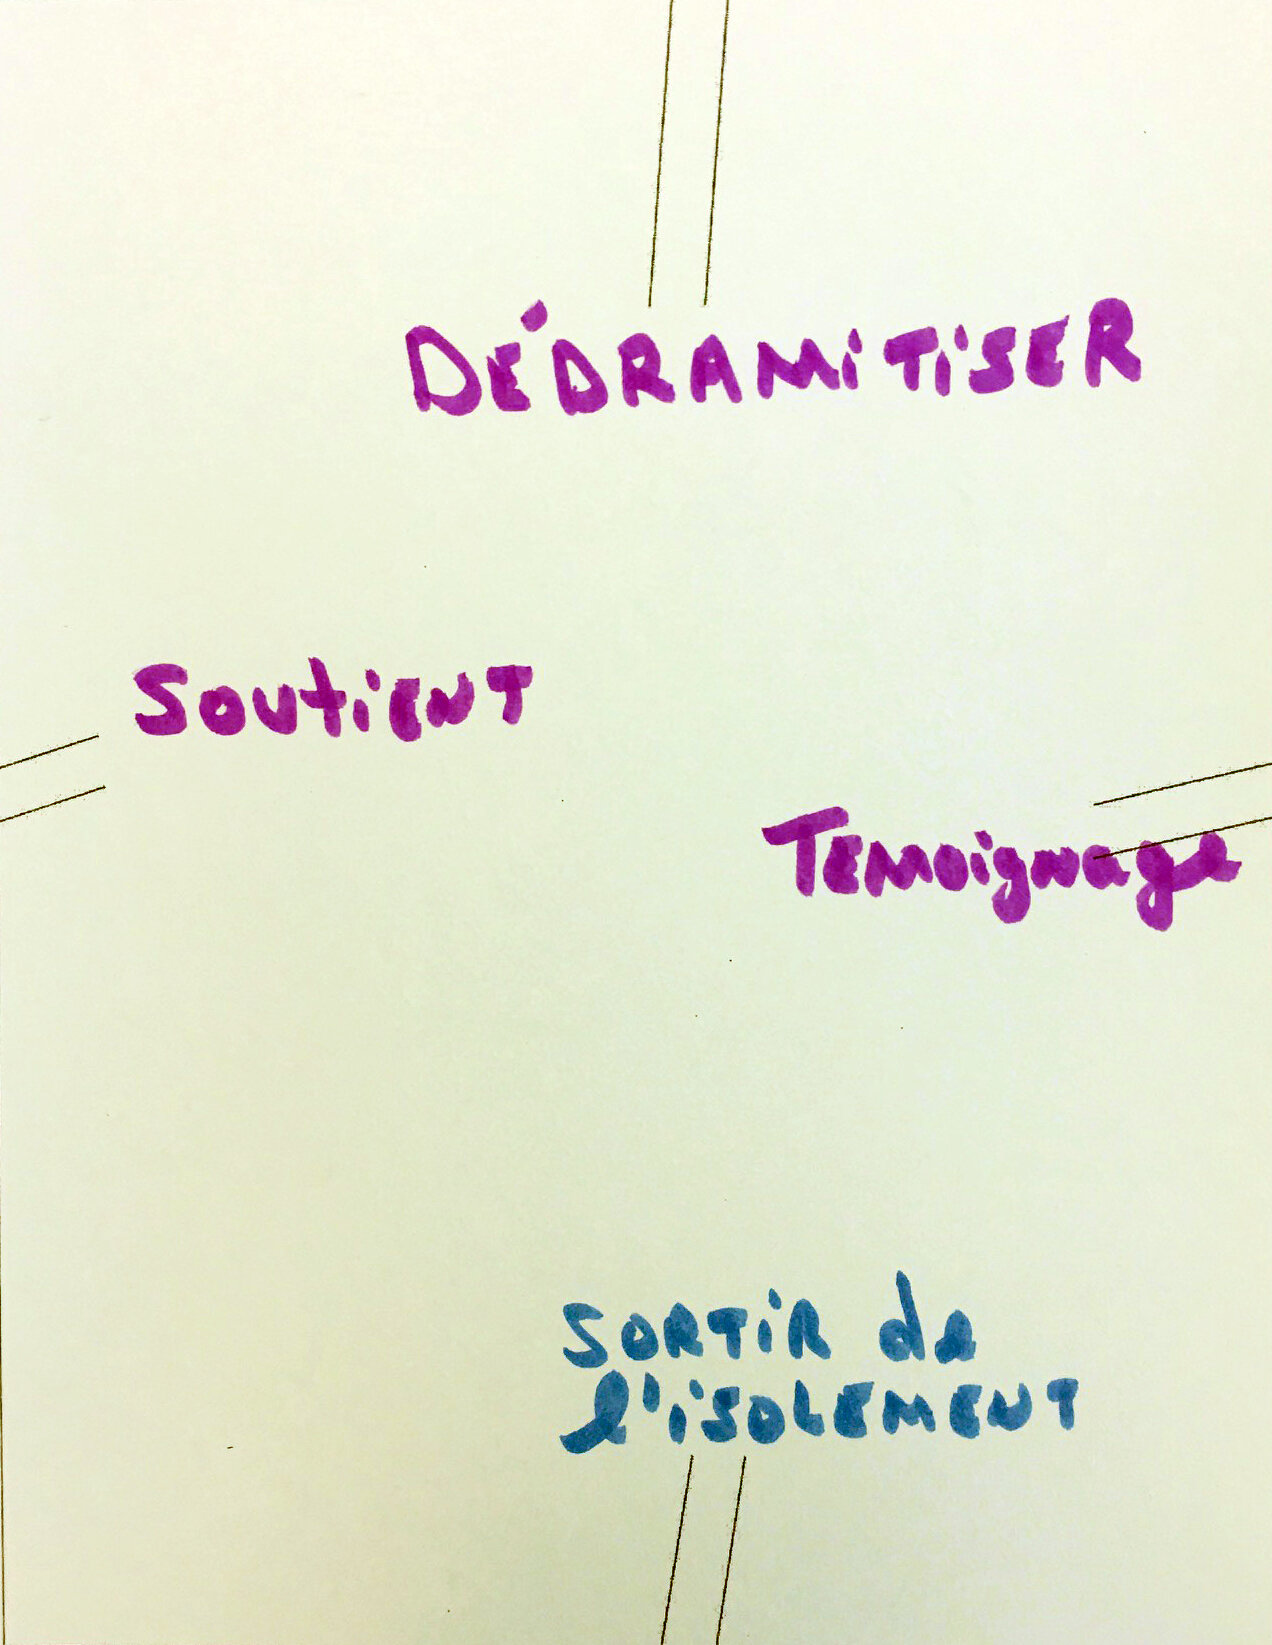 DÉDRAMiTiSER
SoutiENT
TEMoignage
SORTiR de
l'iSOLEMENT